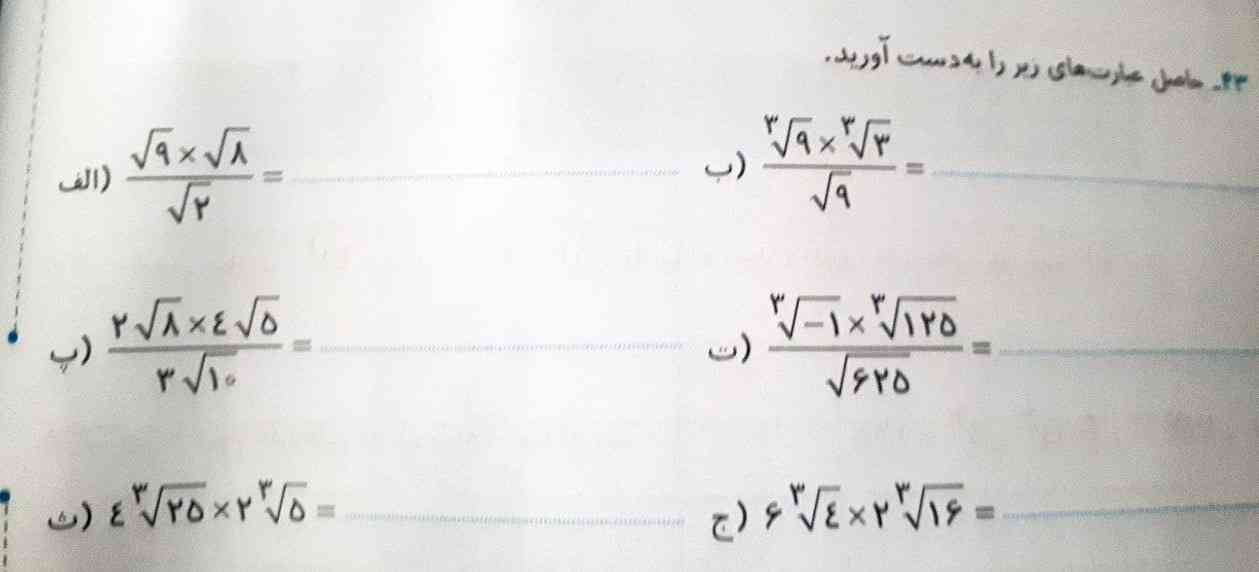 ۲۳. حاصل عبارت‌های زیر را به‌دست آورید.
الف) (√۹ × √۸) / √۲ =
ب) (³√۹ × ³√۳) / √۹ =
پ) (۲√۸ × ٤√۵) / ۳√۱۰ =
ت) (³√−۱ × ³√۱۲۵) / √۶۲۵ =
ث) ٤ ³√۲۵ × ۲ ³√۵ =
ج) ۶ ³√٤ × ۲ ³√۱۶ =